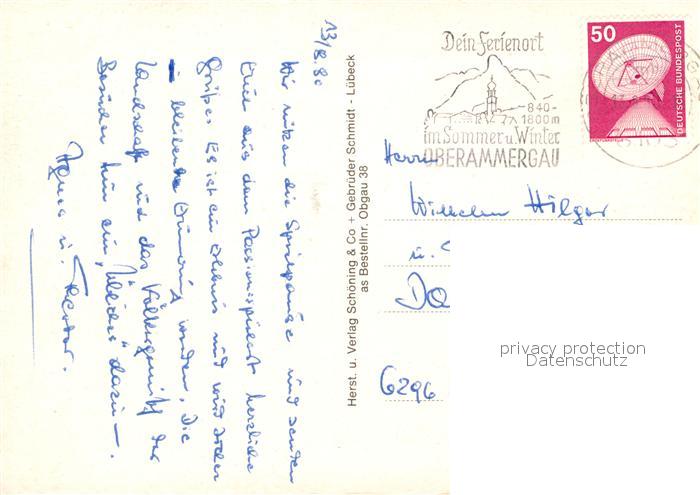 13/8.80
Wir nützen die Spielpause und senden
Euch aus dem Passionsspielort herzliche
Grüße. Es ist ein Erlebnis und wird sicher
in bleibender Erinnerung werden. Die
Landschaft und das Völkergemisch der
Besucher tun ein "Übliches" dazu –.
u. Theodor.
Herst. u. Verlag Schöning & Co + Gebrüder Schmidt - Lübeck
as Bestellnr. Obgau 38
Dein Ferienort
840-
1800m
im Sommer u. Winter
OBERAMMERGAU
50
DEUTSCHE BUNDESPOST
Herrn
Wilhelm Hilger
u.
6296
privacy protection
Datenschutz